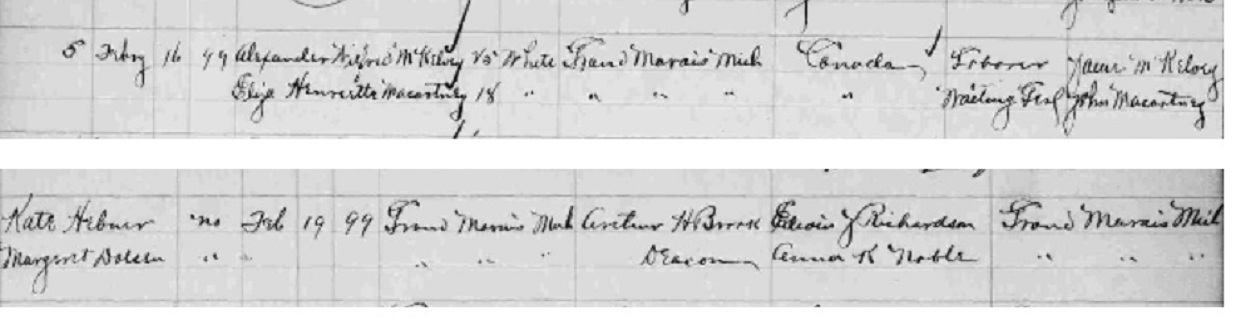 5 Febry 16 99 Alexander Wilfrid McKelvey 25 White Grand Marais Mich Canada Laborer James McKelvey
Eliza Henrietta Macartney 18 " " " " " Waiting Girl John Macartney
Kate Hebner no Feb 19 99 Grand Marais Mich Arthur H Brook Edwin J Richardson Grand Marais Mich
Margaret Dolsen " " " " " Deacon Anna K Noble " " "